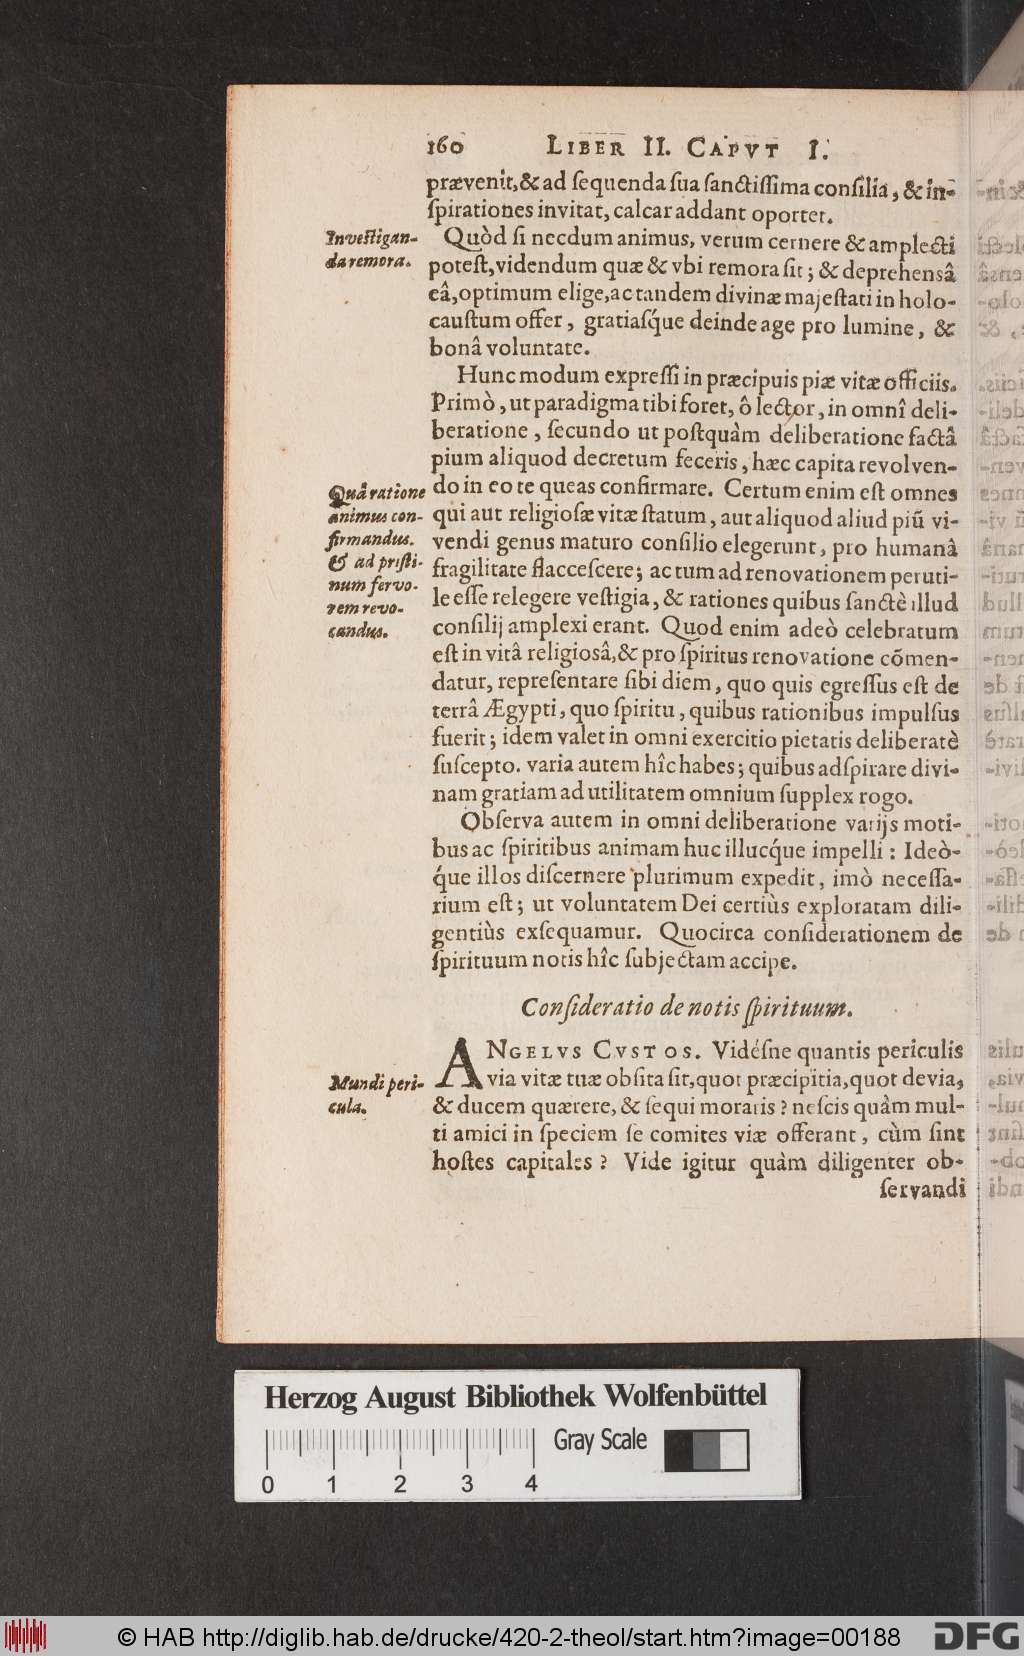 160 LIBER II. CAPVT I.
prævenit, & ad ſequenda ſua ſanctiſſima conſilia, & in-
ſpirationes invitat, calcar addant oportet.
Inveſtigan-
da remora.
Quòd ſi necdum animus, verum cernere & amplecti
poteſt, videndum quæ & vbi remora ſit; & deprehensâ
eâ, optimum elige, ac tandem divinæ majeſtati in holo-
cauſtum offer, gratiaſq́ue deinde age pro lumine, &
bonâ voluntate.
Hunc modum expreſſi in præcipuis piæ vitæ officiis.
Primò, ut paradigma tibi foret, ô lector, in omnî deli-
beratione, ſecundo ut poſtquàm deliberatione factâ
pium aliquod decretum feceris, hæc capita revolven-
Quâ ratione
animus con-
firmandus.
& ad priſti-
num fervo-
rem revo-
candus.
do in eo te queas confirmare. Certum enim eſt omnes
qui aut religioſæ vitæ ſtatum, aut aliquod aliud piũ vi-
vendi genus maturo conſilio elegerunt, pro humanâ
fragilitate flacceſcere; ac tum ad renovationem peruti-
le eſſe relegere veſtigia, & rationes quibus ſanctè illud
conſilij amplexi erant. Quod enim adeò celebratum
eſt in vitâ religiosâ, & pro ſpiritus renovatione cõmen-
datur, repreſentare ſibi diem, quo quis egreſſus eſt de
terrâ Ægypti, quo ſpiritu, quibus rationibus impulſus
fuerit; idem valet in omni exercitio pietatis deliberatè
ſuſcepto. varia autem hîc habes; quibus adſpirare divi-
nam gratiam ad utilitatem omnium ſupplex rogo.
Obſerva autem in omni deliberatione varijs moti-
bus ac ſpiritibus animam huc illucq́ue impelli: Ideò-
q́ue illos diſcernere plurimum expedit, imò neceſſa-
rium eſt; ut voluntatem Dei certiùs exploratam dili-
gentiùs exſequamur. Quocirca conſiderationem de
ſpirituum notis hîc ſubjectam accipe.
Conſideratio de notis ſpirituum.
ANGELVS CVSTOS. Vidéſne quantis periculis
Mundi peri-
cula.
via vitæ tuæ obſita ſit, quot præcipitia, quot devia,
& ducem quærere, & ſequi moraris? neſcis quàm mul-
ti amici in ſpeciem ſe comites viæ offerant, cùm ſint
hoſtes capitales? Vide igitur quàm diligenter ob-
ſervandi
Herzog August Bibliothek Wolfenbüttel
Gray Scale
0 1 2 3 4
© HAB http://diglib.hab.de/drucke/420-2-theol/start.htm?image=00188
DFG